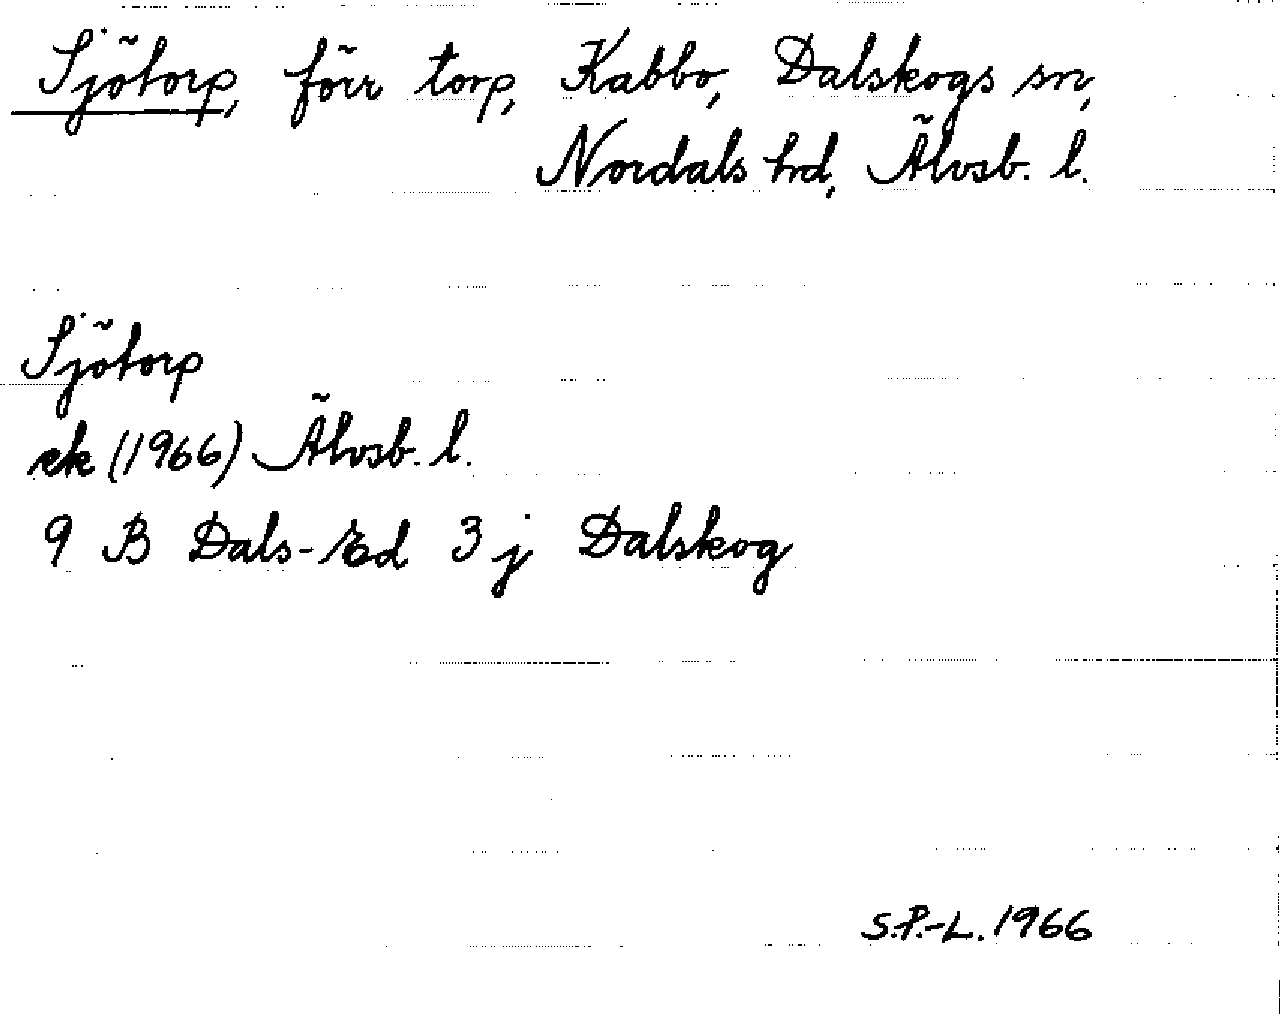 Sjötorp, förr torp, Kabbo, Dalskogs sn,
Nordals hd, Älvsb. l.
Sjötorp
ek (1966) Älvsb. l.
9 B Dals-Ed 3 j Dalskog
S.P.-L. 1966